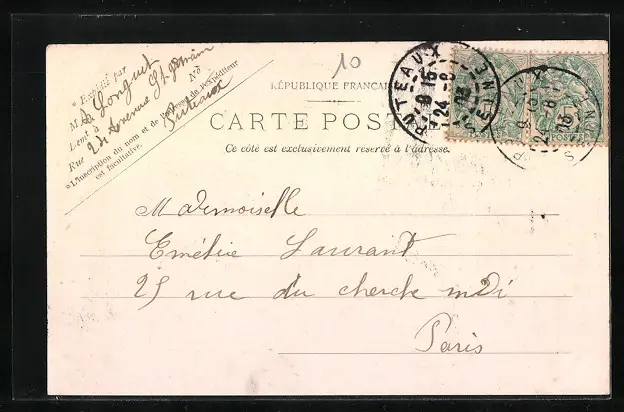 * Expédié par
M. Longuet
Demt à St Germain
Rue 24 Avenue No
Puteaux
*L'inscription du nom et de l'adresse de l'expéditeur
est facultative.
10
RÉPUBLIQUE FRANÇAISE
CARTE POSTALE
Ce côté est exclusivement réservé à l'adresse.
PUTEAUX
8 15
24 -8
03
SEINE
POSTES
Mademoiselle
Emélie Laurant
25 rue du cherche midi
Paris